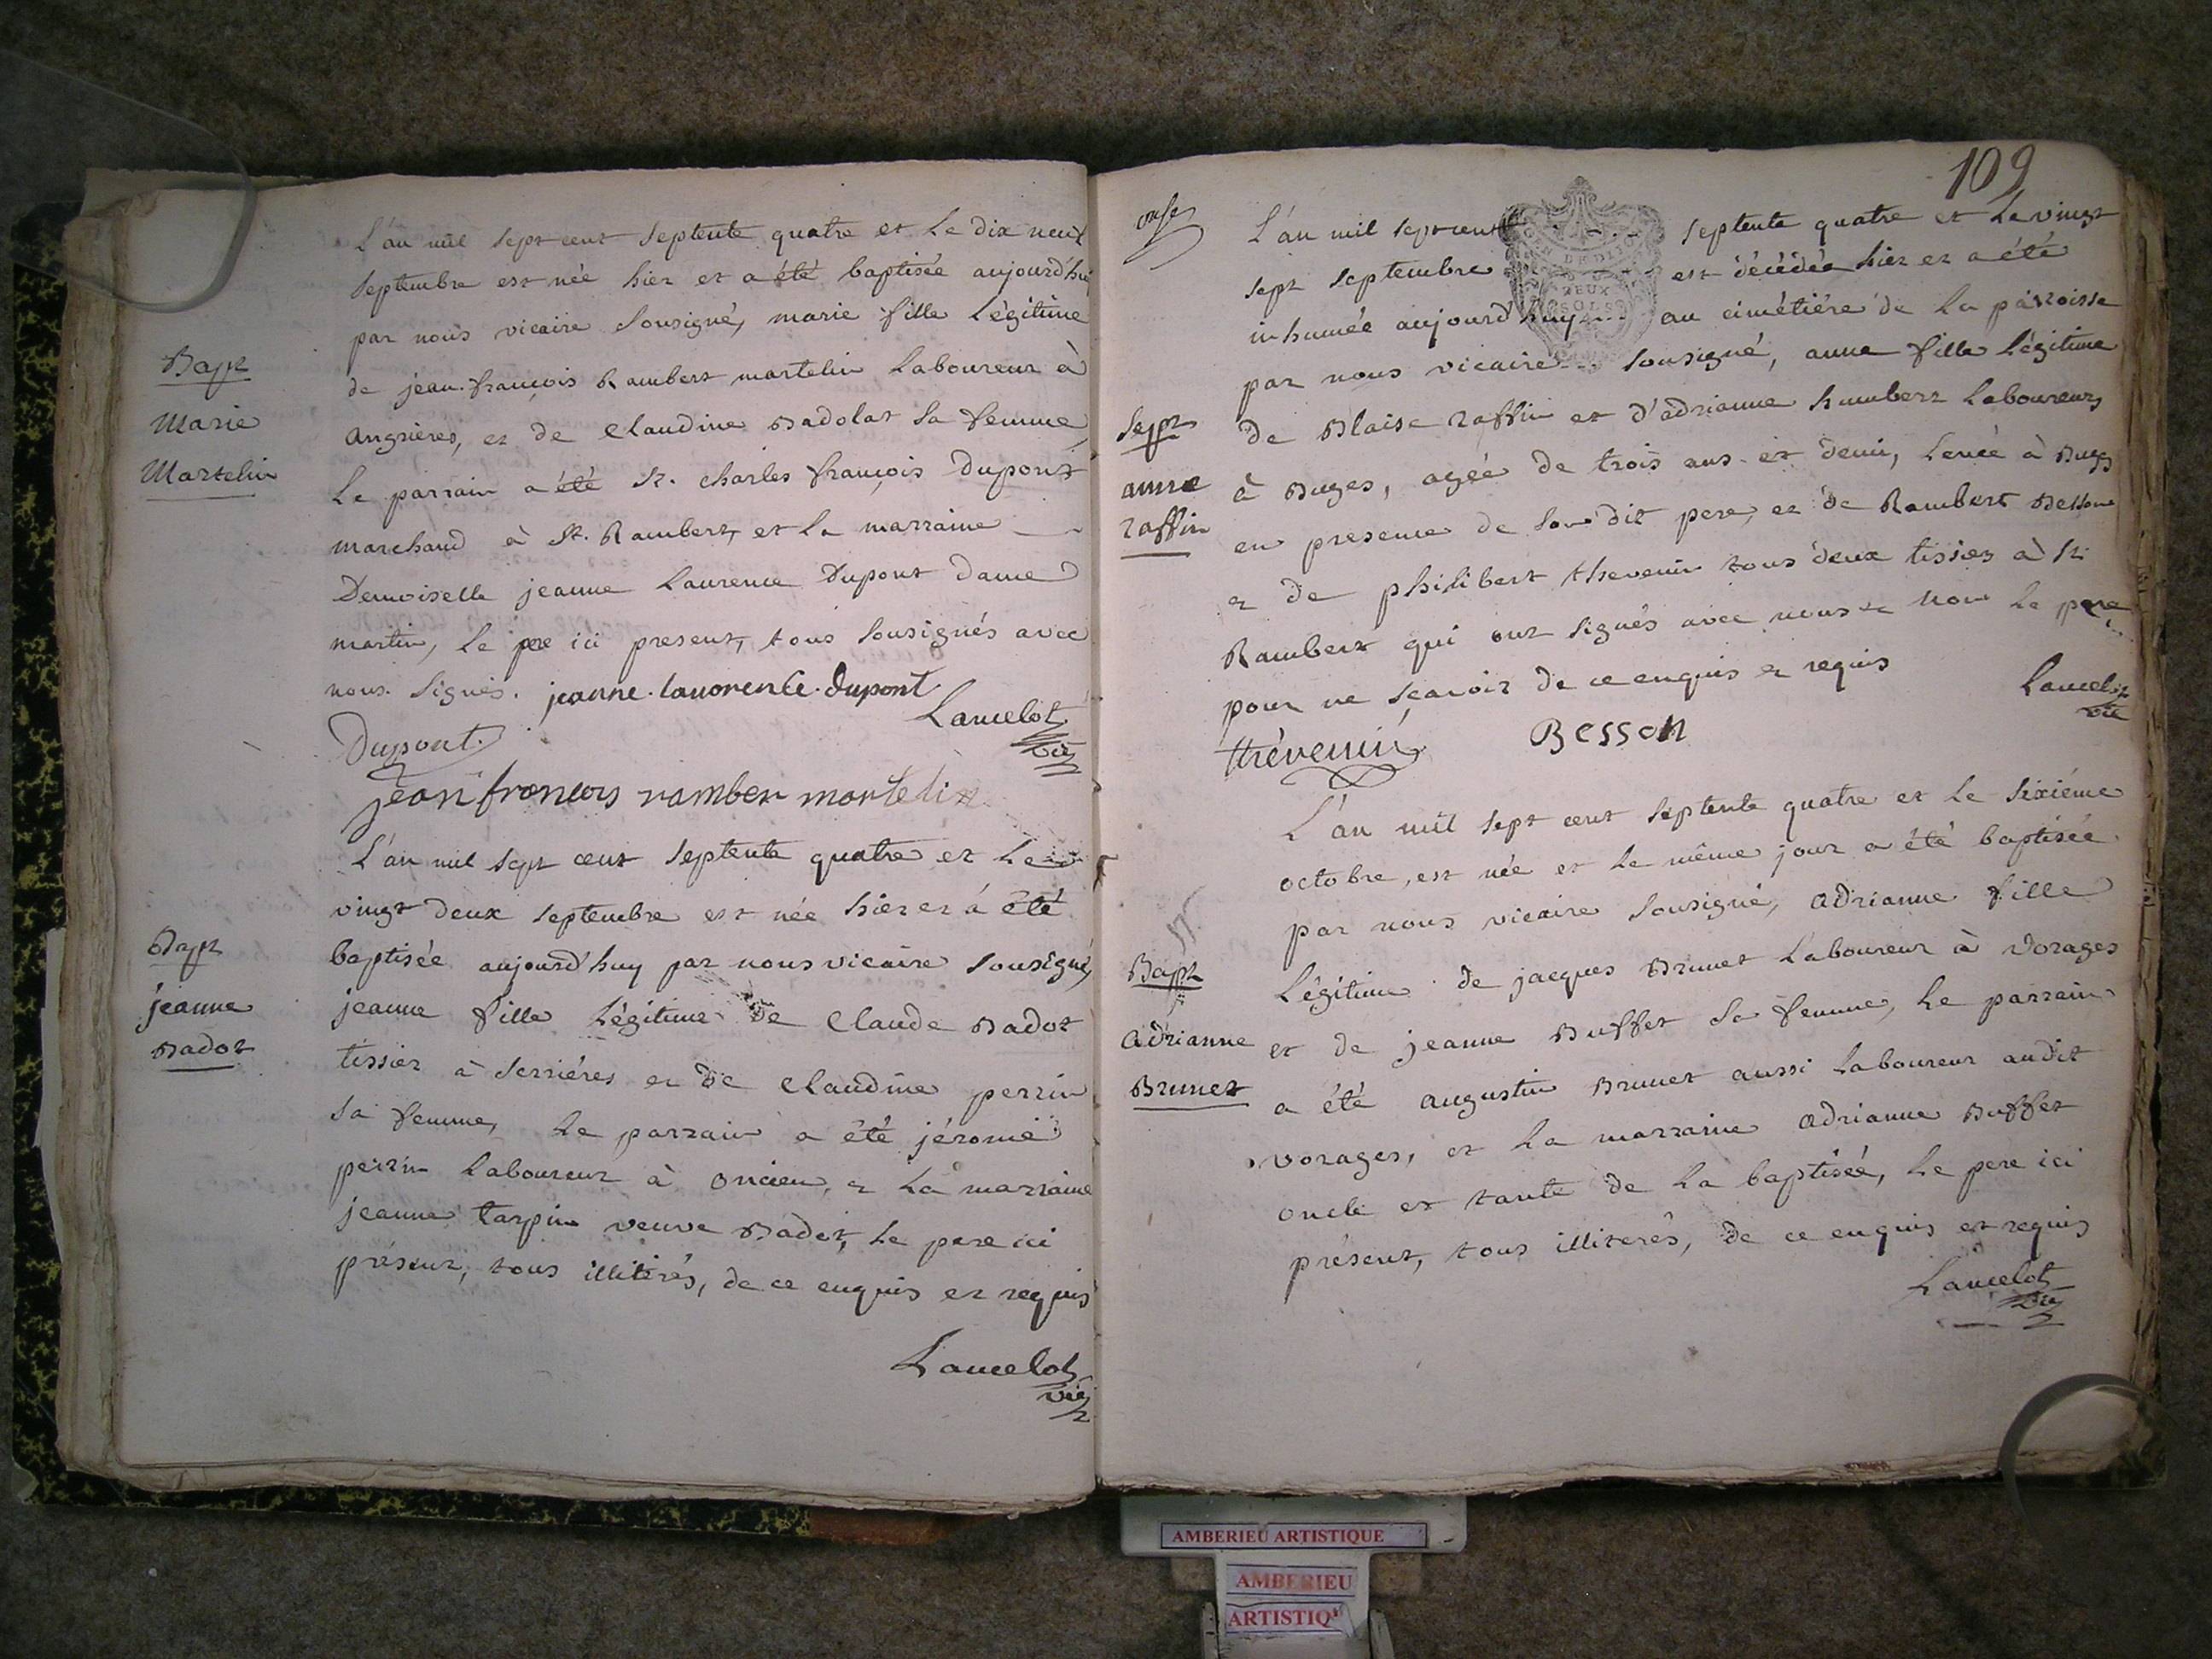 Bapt
Marie
Martelin
L'an mil sept cent septente quatre et le dix neuf
septembre est née hier et a été baptisée aujourd'hui
par nous vicaire sousigné, marie fille légitime
de jean-françois Rambert martelin laboureur à
angrieres, et de claudine Badolat sa femme,
le parrain a été Sr. charles françois Dupont
marchand à St. Rambert, et la marraine
Demoiselle jeanne laurence Dupont dame
martin, le pere ici present, tous sousignés avec
nous signés. jeanne laurence dupont
Lancelot
vic
Dupont
jean francois ramber martelin
Bapt
jeanne
Badot
L'an mil sept cent septente quatre et le
vingt deux septembre est née hier et a été
baptisée aujourd'huy par nous vicaire sousigné,
jeanne fille légitime de Claude Badot
tissier à serriéres et de claudine perrin
sa femme, le parrain a été jérome
perrin laboureur à oncieu, et la marraine
jeanne tarpin veuve Badot, le pere ici
présent, tous illitérés, de ce enquis et requis
Lancelot
vic
109
onse
GEN DE DIJON
DEUX
SOLS
Sept
anne
raffin
L'an mil sept cent septente quatre et le vingt
sept septembre est décédée hier et a été
inhumée aujourd'huy au cimétiére de la parroisse
par nous vicaire sousigné, anne fille légitime
de Blaise raffin et d'adrianne humbert laboureurs
à Buges, agée de trois ans et demi, levée à Buges
en presence de son dit pere, et de Rambert Besson
et de philibert thevenin tous deux tissiers à St
Rambert qui ont signés avec nous et non le pere
pour ne sçavoir de ce enquis et requis
Lancelot
vic
thévenin
Besson
Bapt
adrianne
Brunet
L'an mil sept cent septente quatre et le sixiéme
octobre, est née et le même jour a été baptisée
par nous vicaire sousigné, adrianne fille
légitime de jacques Brunet laboureur à vorages
et de jeanne Buffet sa femme, le parrain
a été augustin Brunet aussi laboureur audit
vorages, et la marraine adrianne Buffet
oncle et tante de la baptisée, le pere ici
présent, tous illiterés, de ce enquis et requis
Lancelot
vic
AMBERIEU ARTISTIQUE
AMBERIEU
ARTISTIQU